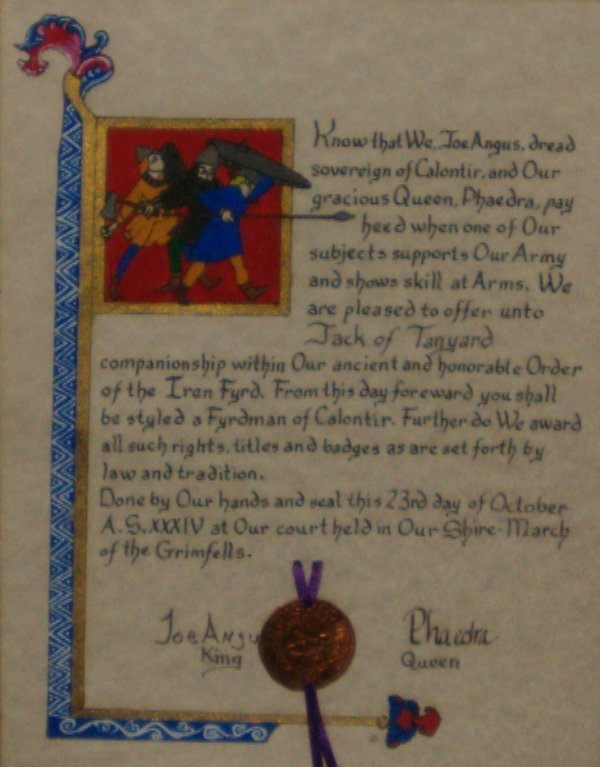 Know that We, JoeAngus, dread
sovereign of Calontir, and Our
gracious Queen, Phaedra, pay
heed when one of Our
subjects supports Our Army
and shows skill at Arms. We
are pleased to offer unto
Jack of Tanyard
companionship within Our ancient and honorable Order
of the Iren Fyrd. From this day foreward you shall
be styled a Fyrdman of Calontir. Further do We award
all such rights, titles and badges as are set forth by
law and tradition.
Done by Our hands and seal this 23rd day of October
A.S. XXXIV at Our court held in Our Shire-March
of the Grimfells.
JoeAngu
King
Phaedra
Queen